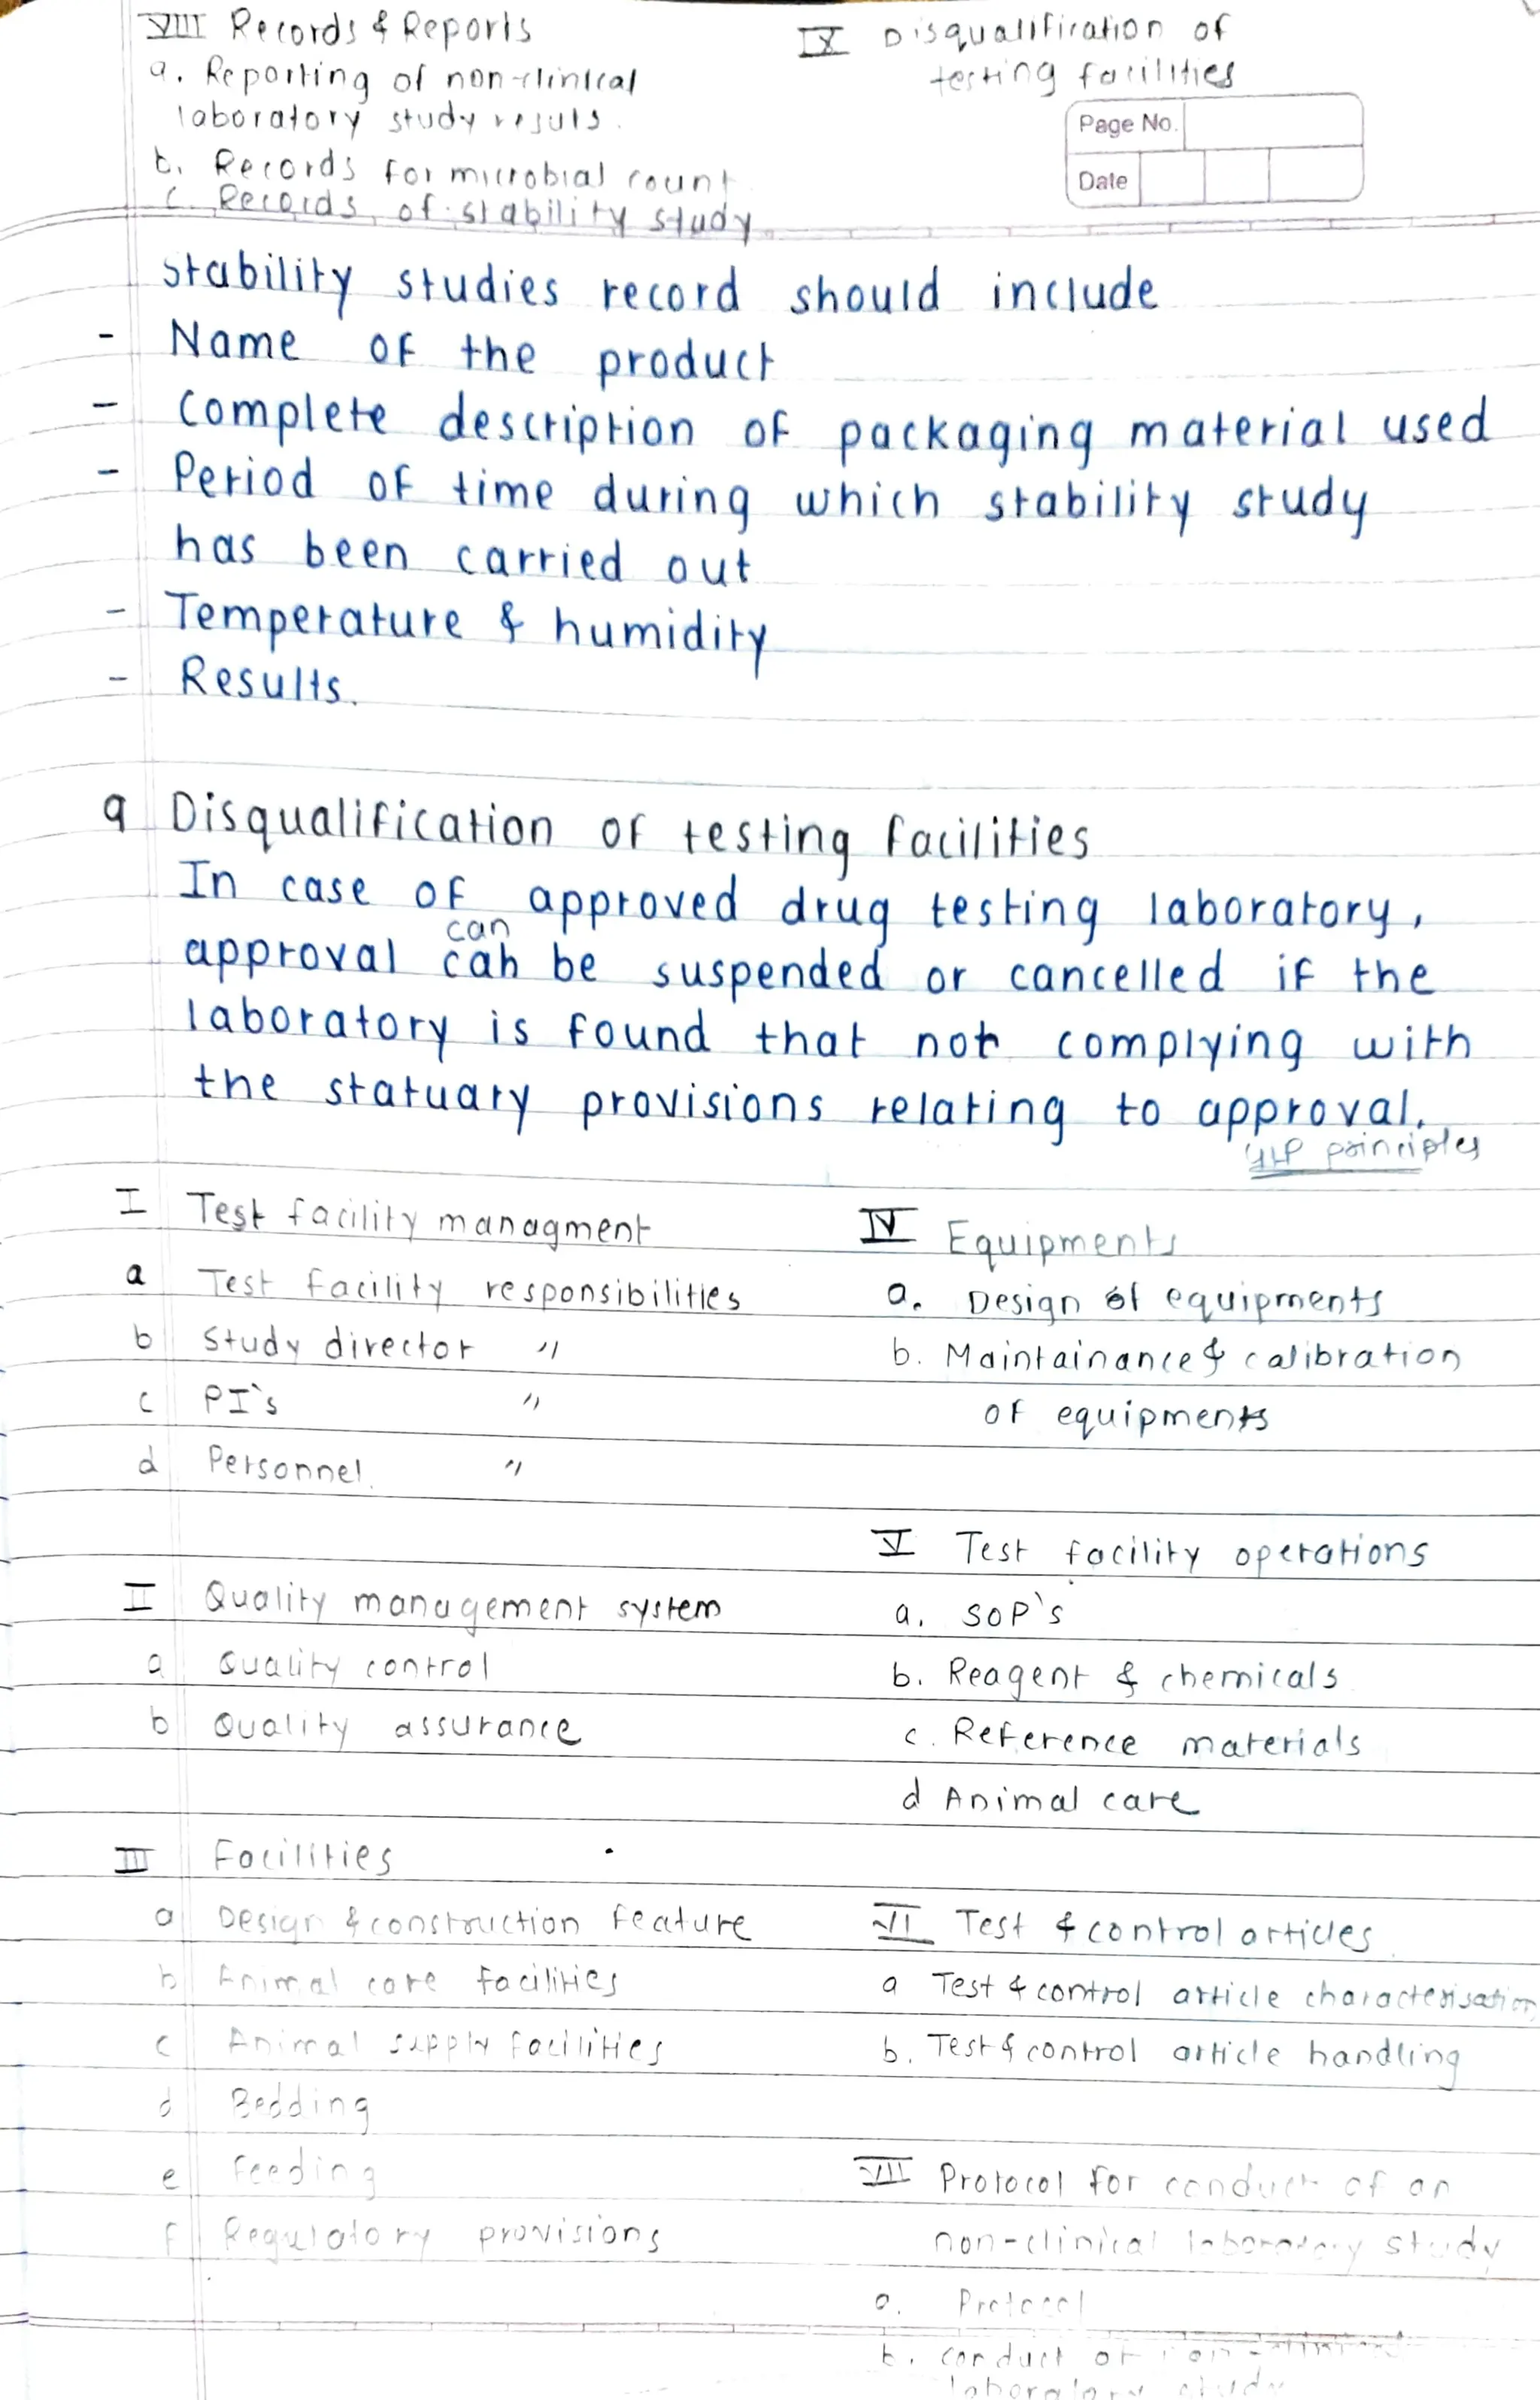 VIII Records & Reports
a. Reporting of non-clinical
laboratory study resuls.
b. Records for microbial count
c. Records of stability study.
IX Disqualification of
testing facilities
Page No.
Date
Stability studies record should include
- Name of the product
- Complete description of packaging material used
- Period of time during which stability study
has been carried out
- Temperature & humidity
- Results.
9 Disqualification of testing facilities
In case of approved drug testing laboratory,
can
approval can be suspended or cancelled if the
laboratory is found that not complying with
the statuary provisions relating to approval.
GLP principles
I Test facility managment
a Test facility responsibilities
b Study director "
c PI's "
d Personnel "
II Quality management system
a Quality control
b Quality assurance
III Facilities
a Design & construction feature
b Animal care facilities
c Animal supply facilities
d Bedding
e Feeding
f Regulatory provisions
IV Equipments
a. Design of equipments
b. Maintainance & calibration
of equipments
V Test facility operations
a. SOP's
b. Reagent & chemicals
c. Reference materials
d Animal care
VI Test & control articles
a Test & control article characterisation
b. Test & control article handling
VII Protocol for conduct of an
non-clinical laboratory study
a. Protocol
b. conduct of non-clinical
laboratory study